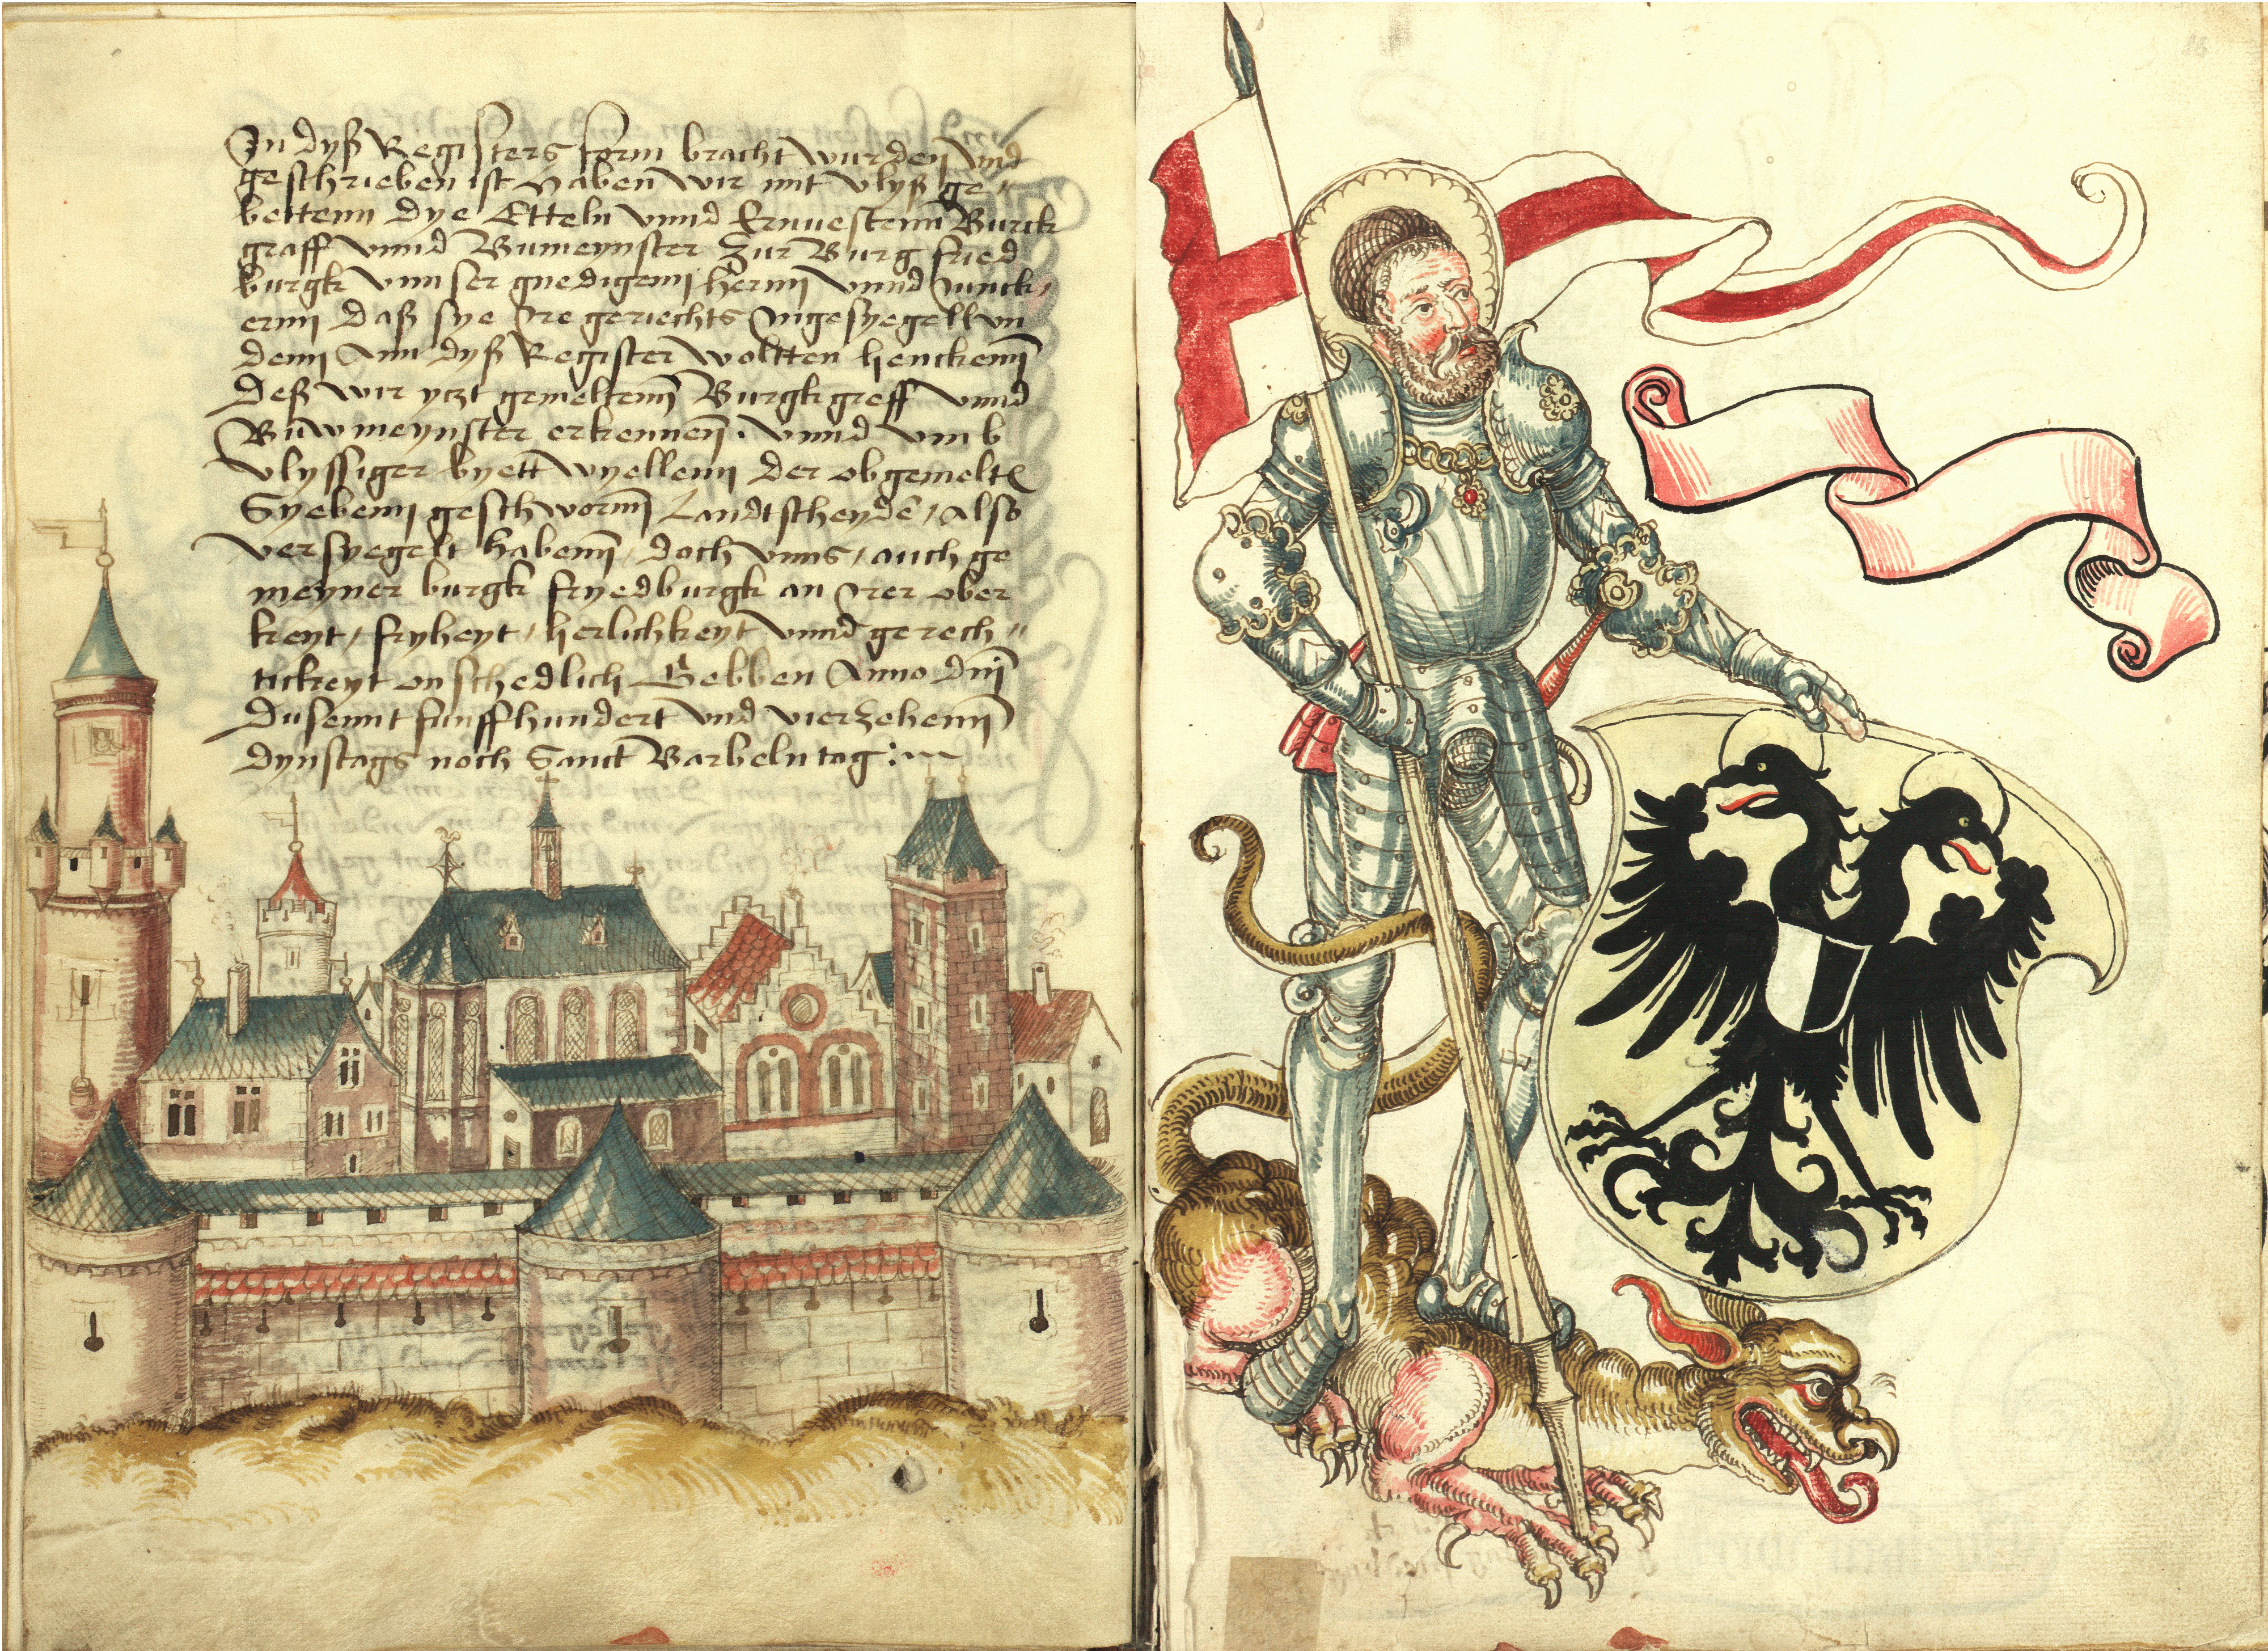 In dyß Registers form bracht wurden vnd
geschrieben ist haben wir mit vlyß ge„
bettenn dye Etteln vnnd Ernuestenn Burck
graff vnnd Bumeynster zur Burg fried
burgk vnnser gnedigenn hernn vnnd Junck„
ernn daß sye Ire gerichts Ingesyegell vn
denn Ann dyß Register woltten henckenn
Deß wir yczt gemeltenn Burgkgreff vnnd
Buwmeynster erkennen. vnnd vmb
vlyssiger byett wyellenn der obgemelte
Syebenn geschwornn Landtscheyde / also
versyegelt habenn / doch vnns / auch ge
meyner burgk fryedburgk an Irer ober
keyt / fryheyt / herlichkeyt vnnd gerech„
tickeyt onschedlich Gebben Anno dnj
Dusennt funffhundert vnd vierzehenn
dynstags noch Sanct Barbeln tag :~
86